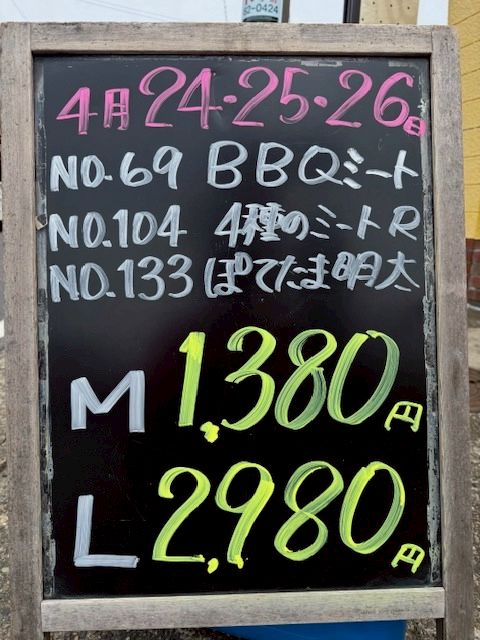 60-0424
4月24・25・26日
NO.69 BBQミート
NO.104 4種のミートR
NO.133 ぽてたま明太
M 1,380円
L 2,980円